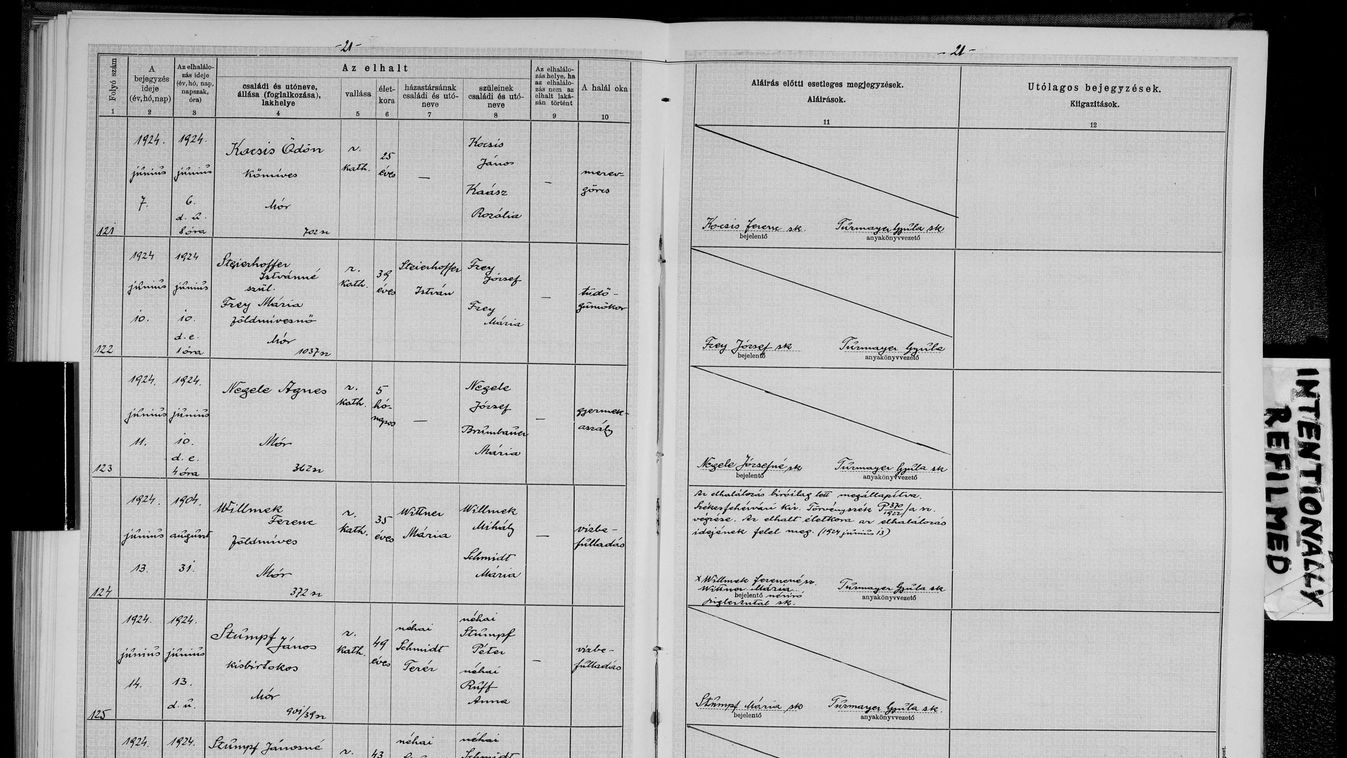 -21-
Folyó szám
A bejegyzés ideje (év, hó, nap)
Az elhalálozás ideje (év, hó, nap, napszak, óra)
Az elhalt
családi és utóneve, állása (foglalkozása), lakhelye
vallása
életkora
házastársának családi és utóneve
szüleinek családi és utóneve
Az elhalálozás helye, ha az elhalálozás nem az elhalt lakásán történt
A halál oka
1 2 3 4 5 6 7 8 9 10
121
1924. június 7.
1924. június 6. d. u. 8 óra
Kocsis Ödön
kőmíves
Mór
702 n
r. kath.
25 éves
—
Kocsis János
Kaász Rozália
—
merevgörcs
122
1924 június 10.
1924 június 10. d. e. 1 óra
Steierhoffer Istvánné
szül. Frey Mária
földmívesnő
Mór
1037 n
r. kath.
39 éves
Steierhoffer István
Frey József
Frey Mária
—
tüdő-gümőkór
123
1924. június 11.
1924. június 10. d. e. 4 óra
Negele Agnes
Mór
362 n
r. kath.
5 hónapos
—
Negele József
Brumbauer Mária
—
gyermekaszály
124
1924 június 13.
1904. august 31.
Willmek Ferenc
földmíves
Mór
372 n
r. kath.
35 éves
Wittner Mária
Willmek Mihály
Schmidt Mária
—
vizbefulladás
125
1924. június 14.
1924. június 13. d. u.
Stumpf János
kisbirtokos
Mór
901/39 n
r. kath.
49 éves
néhai Schmidt Teréz
néhai Stumpf Péter
néhai Ruff Anna
—
vizbefulladás
1924.
1924.
Stumpf Jánosné
r.
43
néhai
néhai
Schmidt
-21-
Aláírás előtti esetleges megjegyzések.
Aláírások.
11
Utólagos bejegyzések.
Kiigazítások.
12
Kocsis Ferenc sk
bejelentő
Turmayer Gyula sk
anyakönyvvezető
Frey József sk
bejelentő
Turmayer Gyula
anyakönyvvezető
Negele Józsefné sk
bejelentő
Turmayer Gyula sk
anyakönyvvezető
Az elhalálozás biróilag lett megállapitva.
Székesfehérvári kir. Törvényszék
végzése. Az elhalt életkora az elhalálozás
idejének felel meg. (1924 június 13)
x Willmek Ferencné sz.
Wittner Mária
bejelentő névíró
sk.
Turmayer Gyula sk
anyakönyvvezető
Stumpf Mária sk
bejelentő
Turmayer Gyula sk.
anyakönyvvezető
INTENTIONALLY
REFILMED